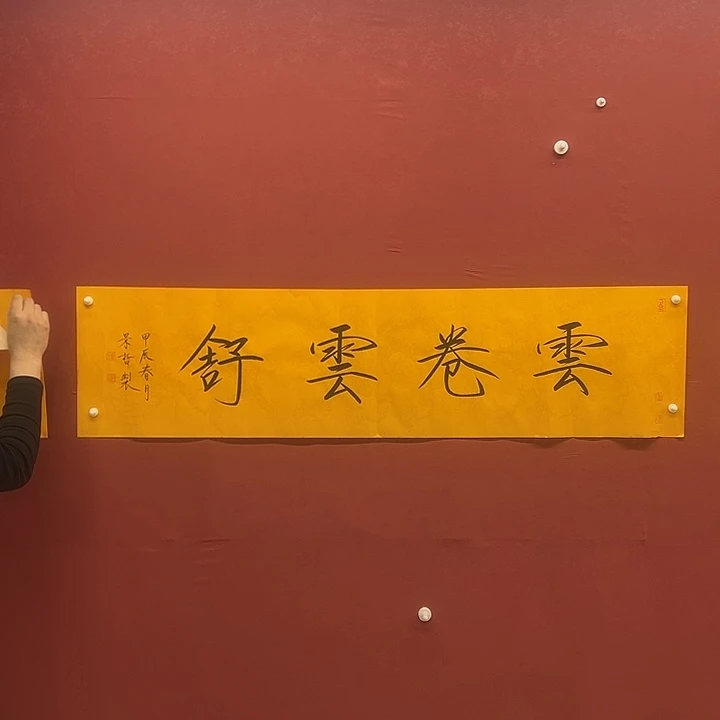 雲卷雲舒
甲辰春月
景哲製